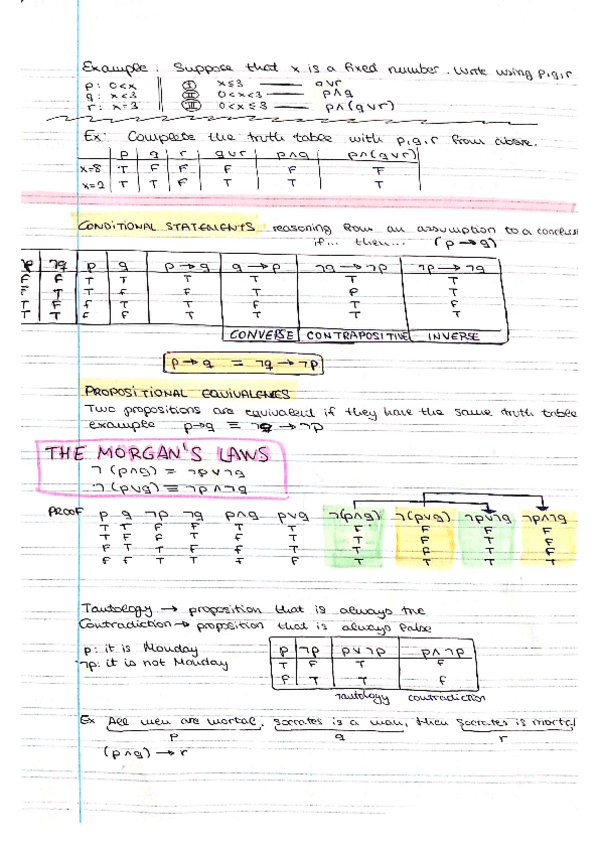 Example: Suppose that x is a fixed number. Write using p,q,r
p: 0<x  Ⅰ x≤3 —— q∨r
q: x<3  Ⅱ 0<x<3 —— p∧q
r: x=3  Ⅲ 0<x≤3 —— p∧(q∨r)
Ex: Complete the truth table with p,q,r from above.
p q r q∨r p∧q p∧(q∨r)
x=8 T F F F F F
x=2 T T F T T T
CONDITIONAL STATEMENTS reasoning from an assumption to a
if... then... (p→q)
¬p ¬q p q p→q q→p ¬q→¬p ¬p→¬q
F F T T T T T T
F T T F F T F T
T F F T T F T F
T T F F T T T T
CONVERSE CONTRAPOSITIVE INVERSE
p→q ≡ ¬q→¬p
PROPOSITIONAL EQUIVALENIES
Two propositions are equivalend if they have the same truth table
example p→q ≡ ¬q→¬p
THE MORGAN'S LAWS
¬(p∧q) ≡ ¬p∨¬q
¬(p∨q) ≡ ¬p∧¬q
PROOF p q ¬p ¬q p∧q p∨q ¬(p∧q) ¬(p∨q) ¬p∨¬q ¬p∧¬q
T T F F T T F F F F
T F F T F T T F T F
F T T F F T T F T F
F F T T F F T T T T
Tautology → proposition that is always true
Contradiction → proposition that is always false
p: it is Monday
¬p: it is not Monday
p ¬p p∨¬p p∧¬p
T F T F
F T T F
tautology contradiction
Ex All men are mortal, socrates is a man, then socrates is mortal
p q r
(p∧q) → r